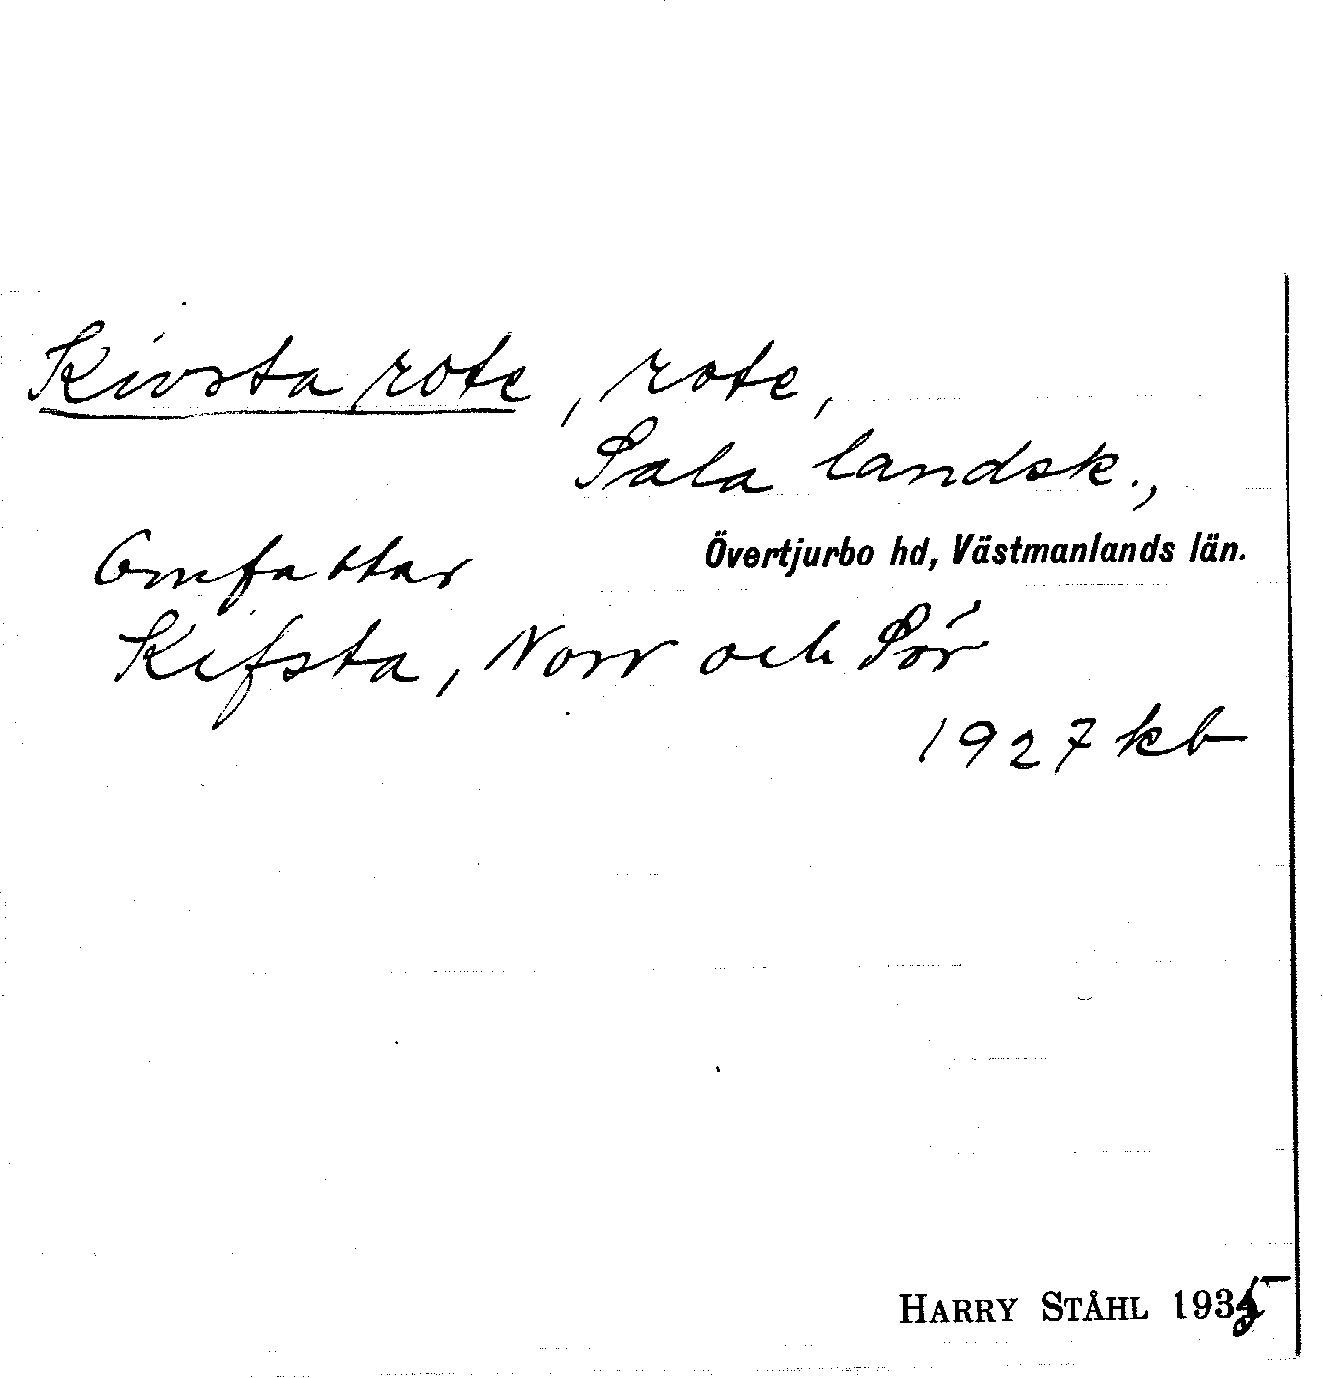 Kivsta rote, rote,
Sala landsk.,
Övertjurbo hd, Västmanlands län.
Omfattar
Kifsta, Norr och Sör
1927 kb
HARRY STÅHL 1935